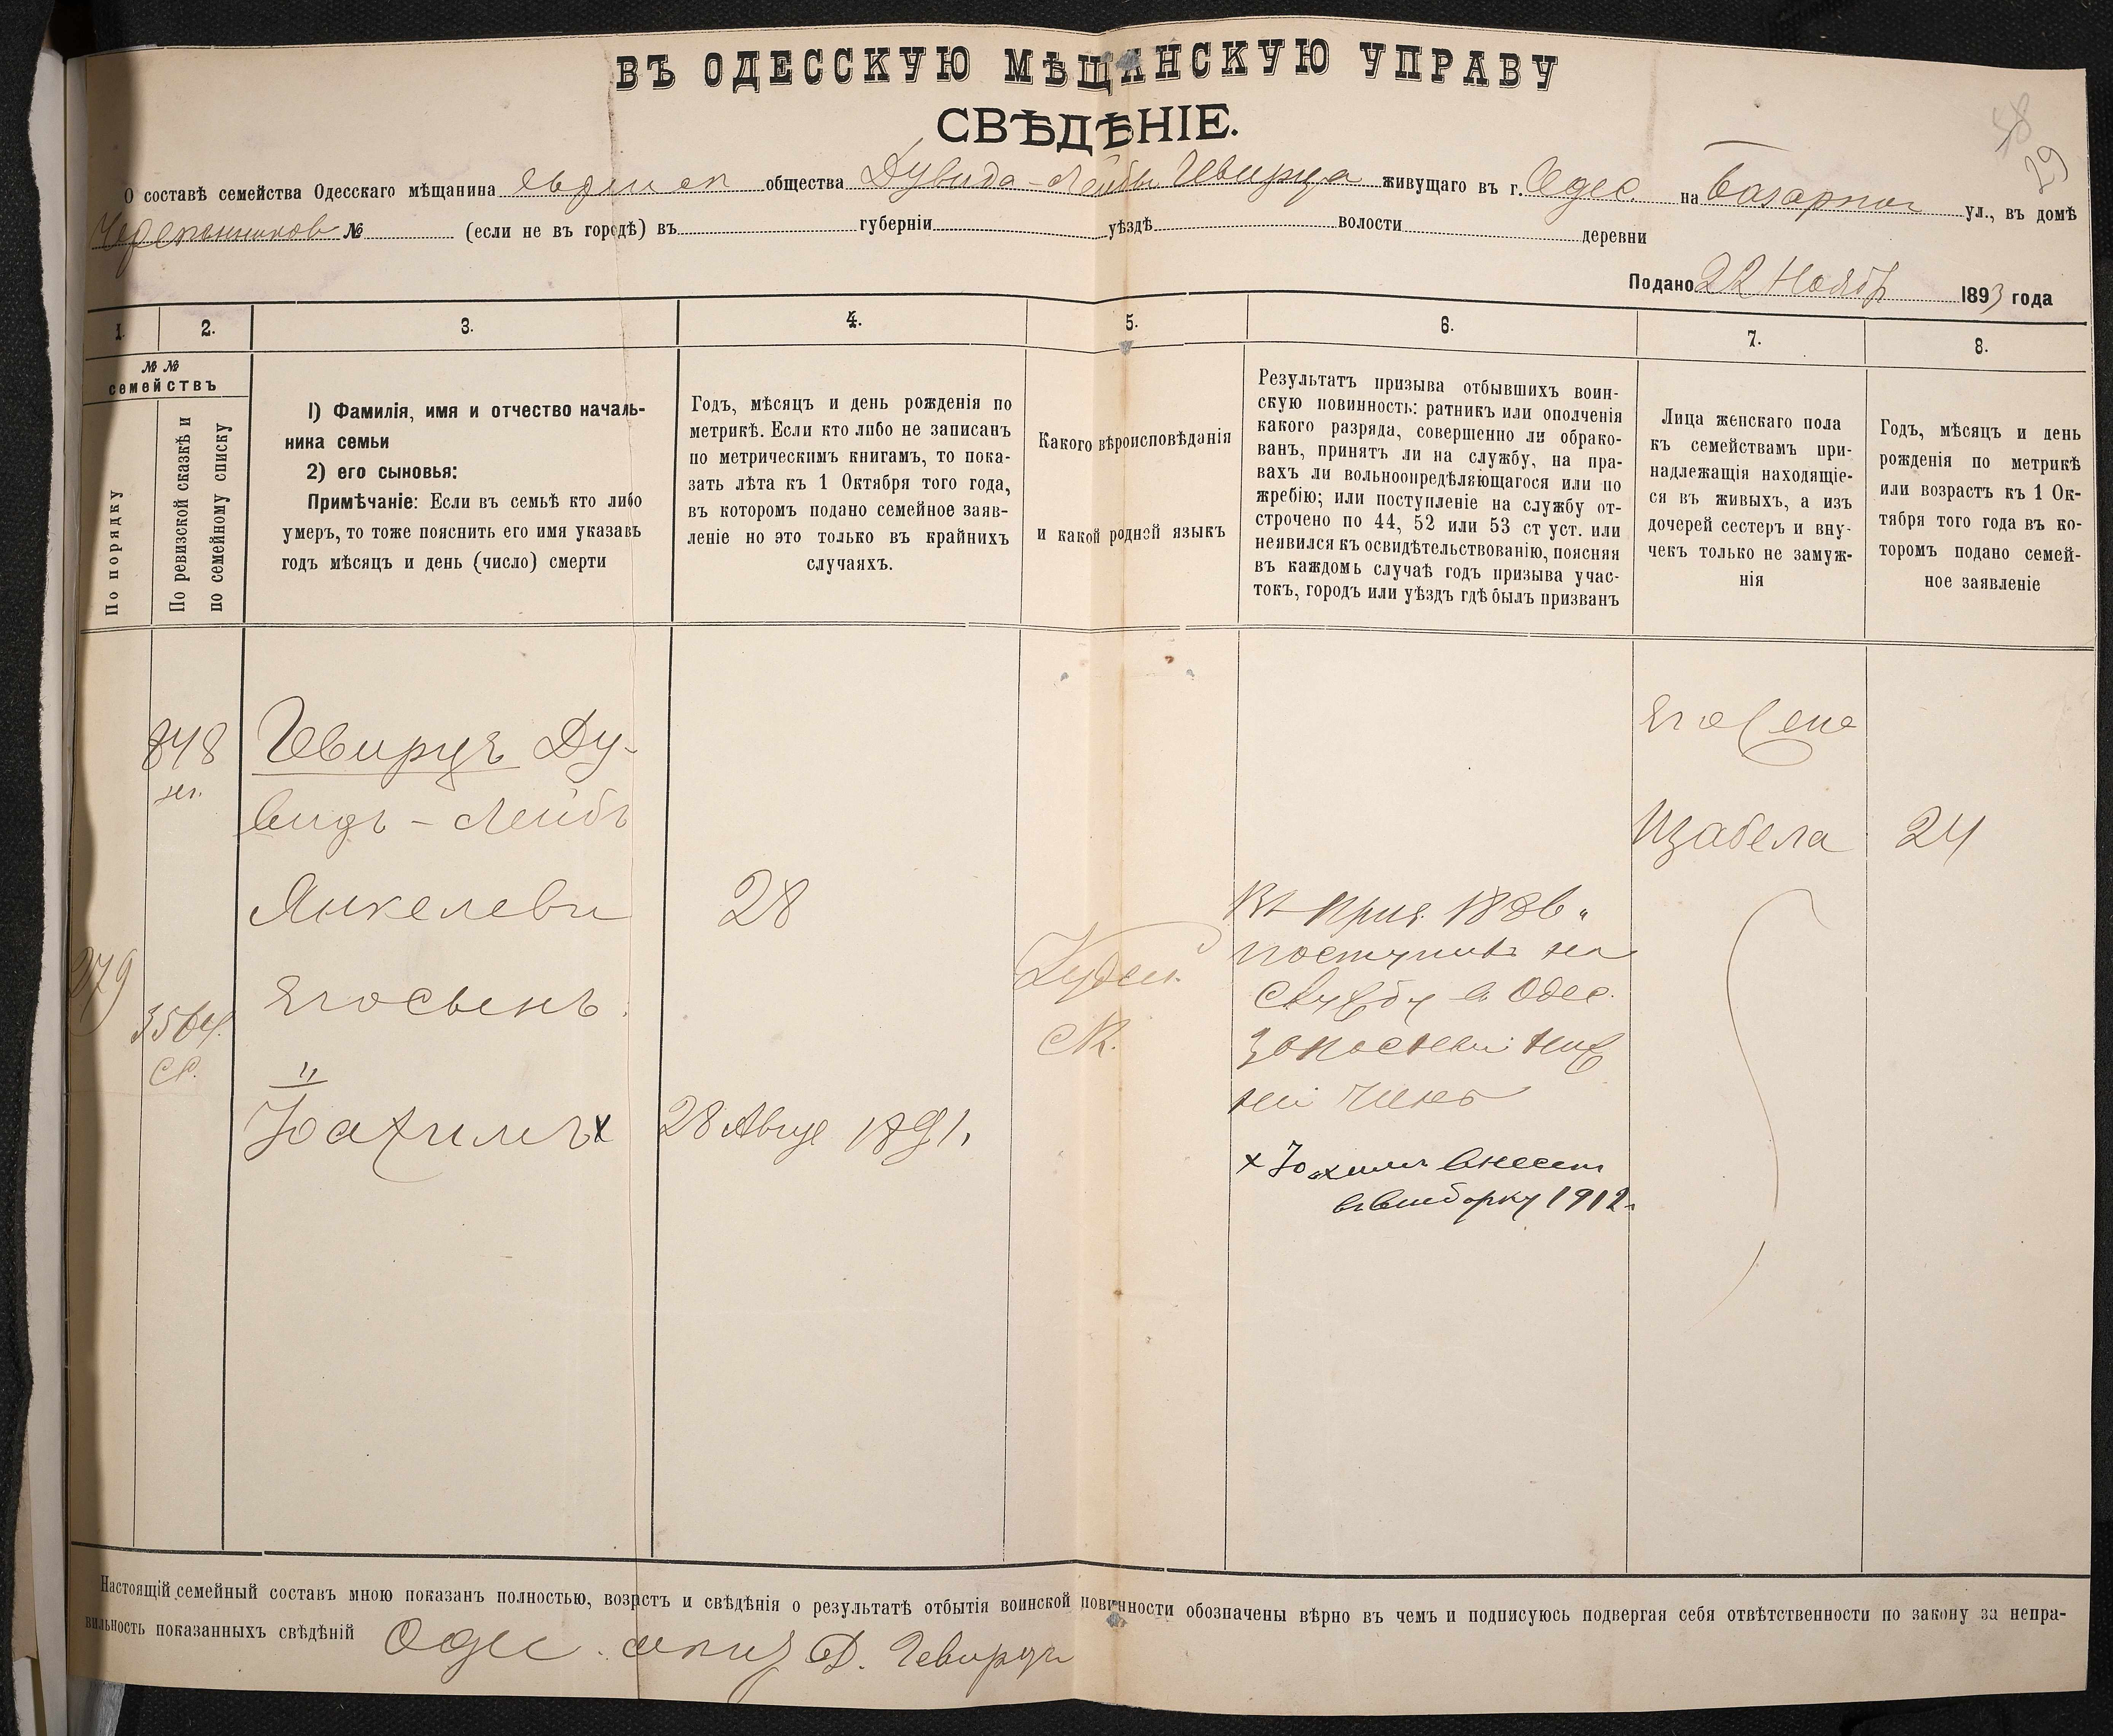 ВЪ ОДЕССКУЮ МѢЩАНСКУЮ УПРАВУ
СВѢДѢНІЕ.
58
29
О составѣ семейства Одесскаго мѣщанина общества Дувида-Лейбы Гевирца живущаго въ г. Одес. на Базарной ул., въ домѣ
№ (если не въ городѣ) въ губерніи уѣздѣ волости деревни
Подано 22 Ноябр 1893 года
1. 2. 3. 4. 5. 6. 7. 8.
№ №
семействъ
По порядку
По ревизской сказкѣ и
по семейному списку
1) Фамилія, имя и отчество началь-
ника семьи
2) его сыновья:
Примѣчаніе: Если въ семьѣ кто либо
умеръ, то тоже пояснить его имя указавъ
годъ мѣсяцъ и день (число) смерти
Годъ, мѣсяцъ и день рожденія по
метрикѣ. Если кто либо не записанъ
по метрическимъ книгамъ, то пока-
зать лѣта къ 1 Октября того года,
въ которомъ подано семейное заяв-
леніе но это только въ крайнихъ
случаяхъ.
Какого вѣроисповѣданія
и какой родной языкъ
Результатъ призыва отбывшихъ воин-
скую повинность: ратникъ или ополченія
какого разряда, совершенно ли обрако-
ванъ, принятъ ли на службу, на пра-
вахъ ли вольноопредѣляющагося или по
жребію; или поступленіе на службу от-
строчено по 44, 52 или 53 ст уст. или
неявился къ освидѣтельствованію, поясняя
въ каждомъ случаѣ годъ призыва учас-
токъ, городъ или уѣздъ гдѣ былъ призванъ
Лица женскаго пола
къ семействамъ при-
надлежащія находящіе-
ся въ живыхъ, а изъ
дочерей сестеръ и вну-
чекъ только не замуж-
нія
Годъ, мѣсяцъ и день
рожденія по метрикѣ
или возрастъ къ 1 Ок-
тября того года въ ко-
торомъ подано семей-
ное заявленіе
848 Гевирцъ Ду-
видъ - Лейбъ
Янкелеви 28
379
3564.
Его сынъ
Іоахимъ х 28 Авгус 1891.
Іудей
ск.
Въ приз. 1886
поступилъ на
службу в Одес.
запасный ниж
ній чинъ
х Іоахимъ внесен
въ выборку 1912
Его жена
Изабела 24
Настоящій семейный составъ мною показанъ полностью, возрстъ и свѣдѣнія о результатѣ отбытія воинской повинности обозначены вѣрно въ чемъ и подписуюсь подвергая себя отвѣтственности по закону за непра-
вильность показанныхъ свѣдѣній Одес. Д. Гевирцъ